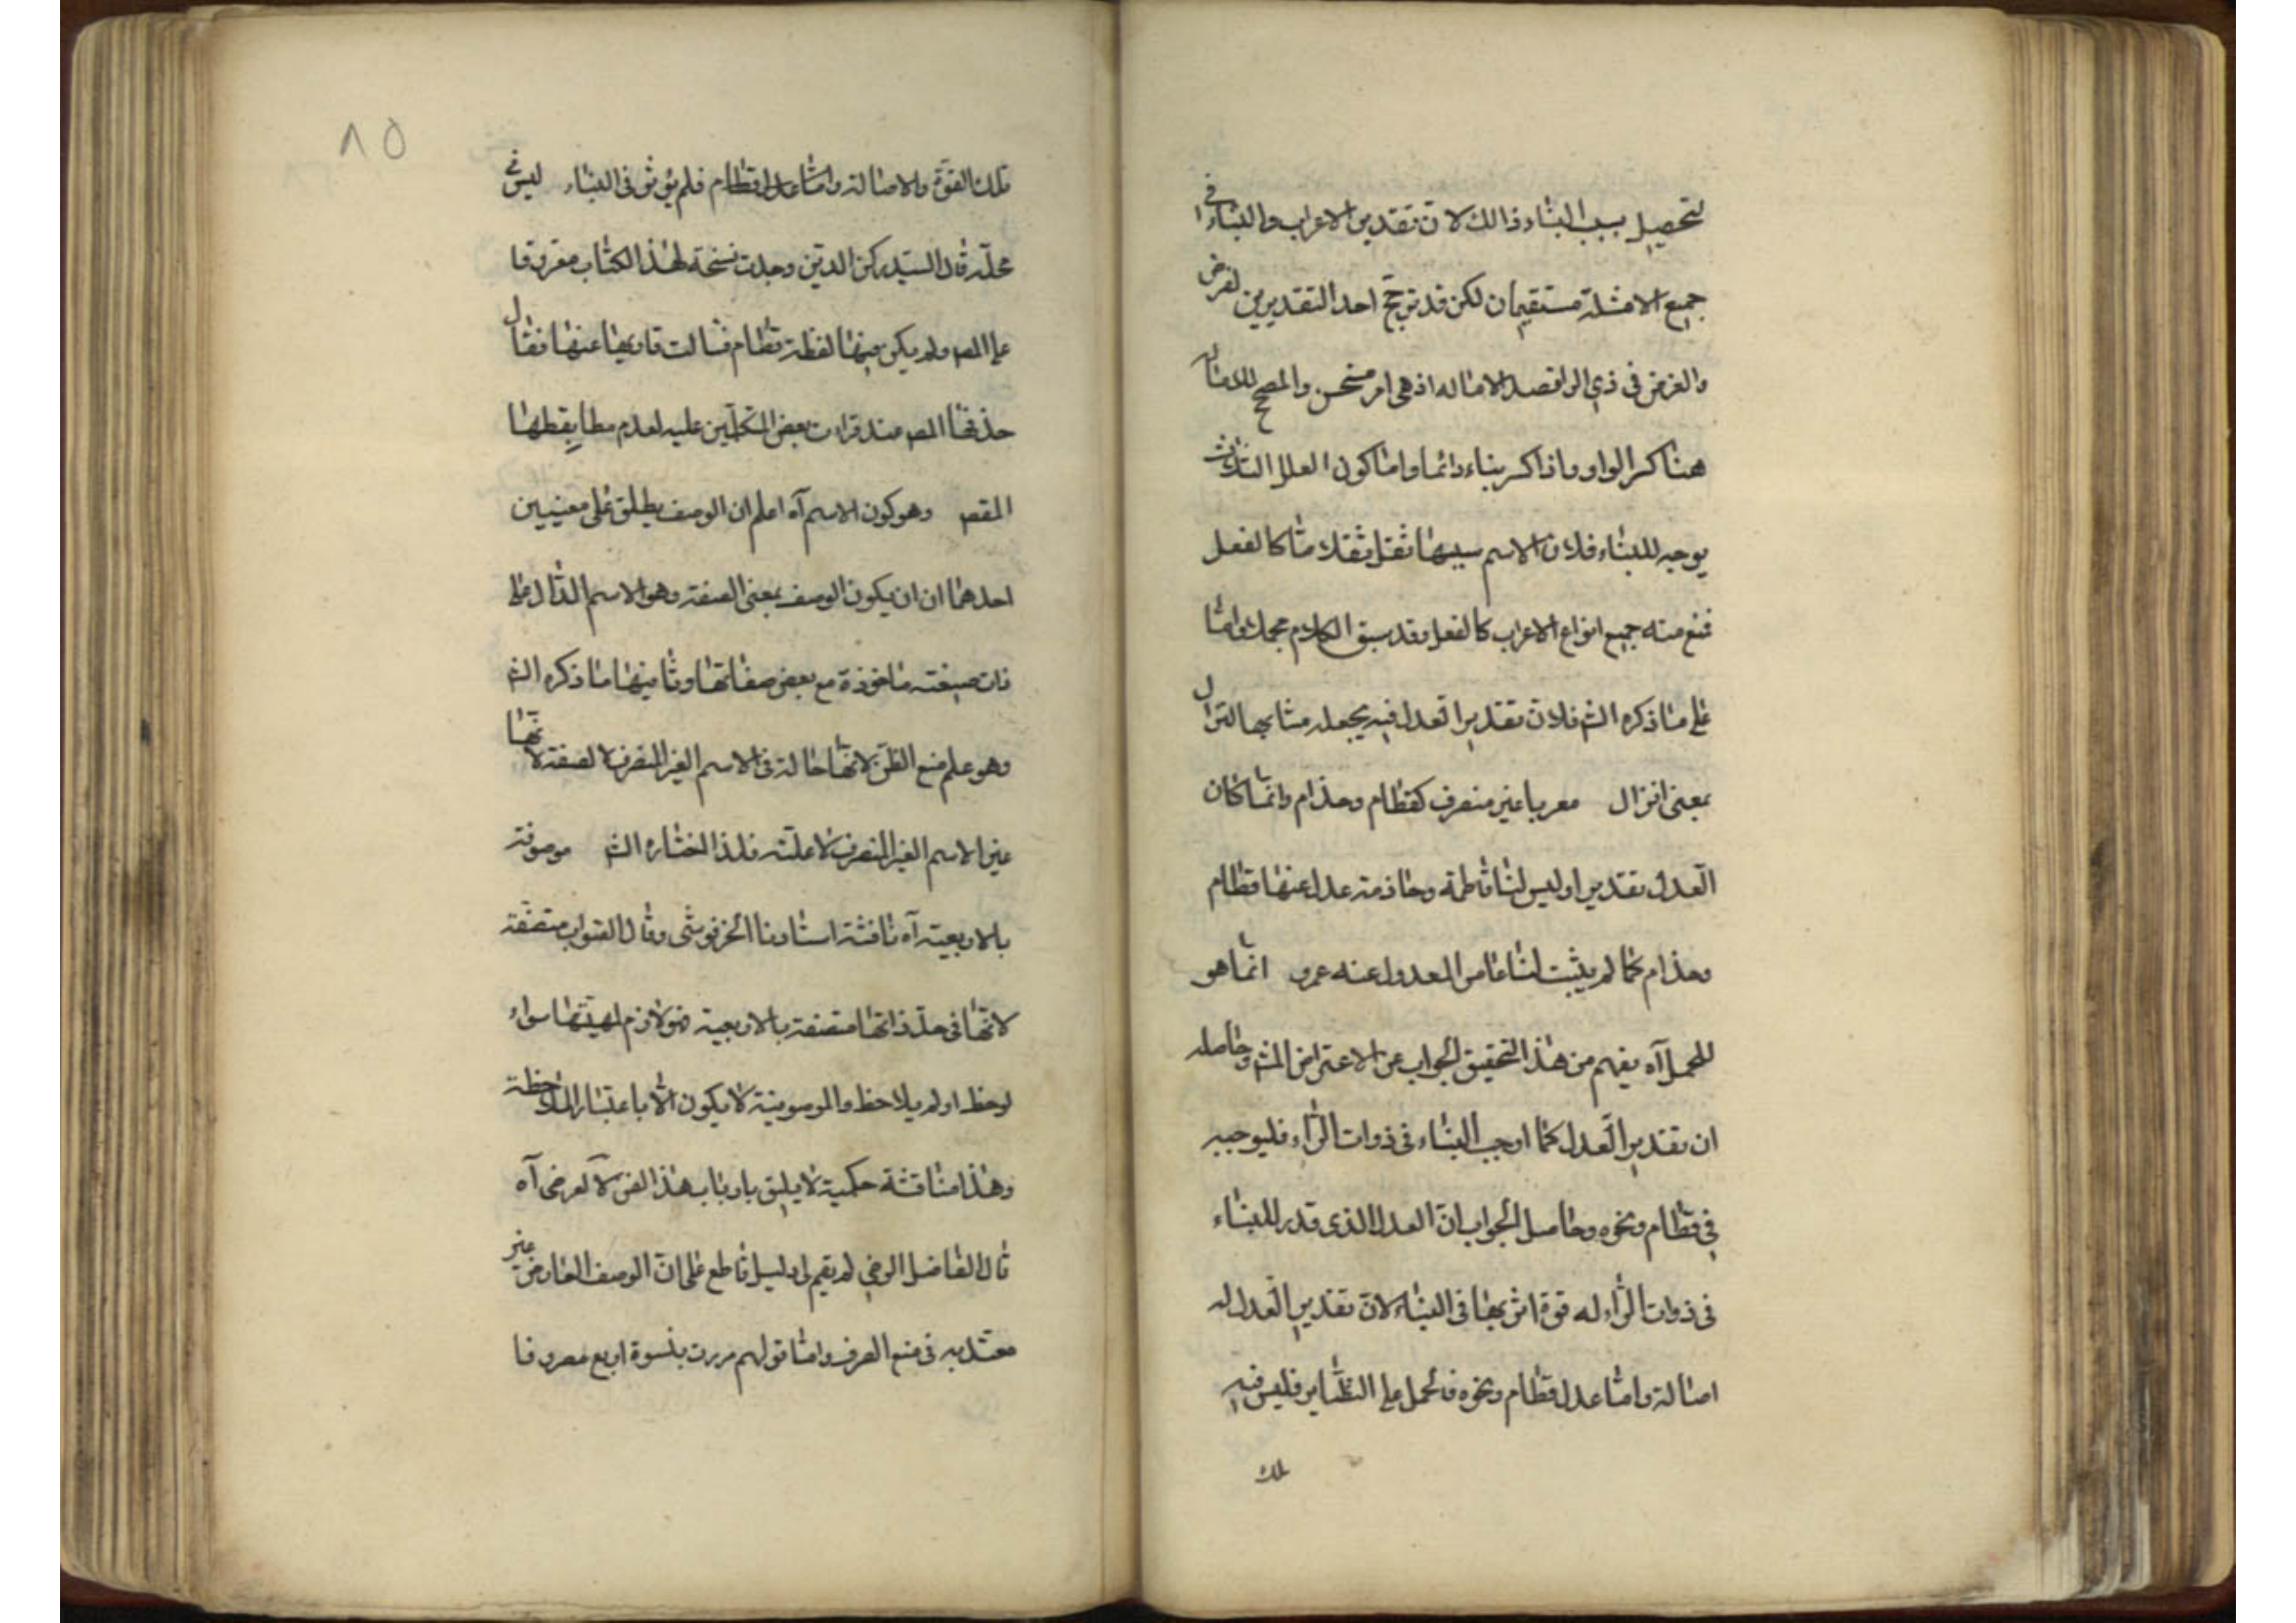 لتحصيل سبب البناء وذالك لان تقدير الاعراب والبناء في
جميع الامثلة مستقيمان لكن قد ترجح احد التقديرين لغرض
والغرض في ذي الراء قصد الاماله اذ هي امر مستحسن والمصحح للامالة
هنا كسر الراء وماذا كسر بناء دائما واما كون العلل الثلاث
يوجبه للبناء فلان الاسم بسببها ثقل ثقلا مثا كالفعل
فمنع منه جميع انواع الاعراب كالفعل وقد سبق الكلام مجملا واما
على ما ذكره الش فلان تقدير العدل فيه يجعله مشابها لنزال
بمعنى انزال معربا غير منصرف كقطام وحذام وانما كان
العدل تقديرا وليس لنا قاطمة وحاذمة عدل عنها قطام
وحذام كما لم يثبت لنا عامر المعدول عنه عمر انما هو
للحمل آه يفهم من هذا التحقيق الجواب عن الاعتراض المش وحاصله
ان تقدير العدل كما اوجب البناء في ذوات الراء فليوجبه
في قطام ونحوه وحاصل الجواب ان العدل الذي قدر للبناء
في ذوات الراء له قوة اثر بها في البناء لان تقدير العدل له
اصالة واما عدل قطام ونحوه فالحمل على النظاير فليس فيه
تلك
٨٥
تلك القوة والاصالة واما عدل قطام فلم يؤثر في البناء ليس في
محله قال السيد ركن الدين وجدت نسخة لهذا الكتاب مقروءة
على المص ولم يكن فيها لفظة قطام فسالت قاريها عنها فقال
حذفها المص عند قراءت بعض المتكلمين عليه لعدم مطابقطها
المقص وهو كون الاسم آه اعلم ان الوصف يطلق على معنيين
احدهما ان ان يكون الوصف بمعنى الصفة وهو الاسم الدال على
ذات صيغته ماخوذة مع بعض صفاتها وثانيها ما ذكره الش
وهو علم منع الظن لانها حالة في الاسم الغير المنصرف لا لصفة لانها
عين الاسم الغير المنصرف لا علته فلذا اختاره الش موصوفة
بالاربعية آه نافشه استادنا الخرفوشى وقال الصواب متصفة
لانها في حد ذاتها متصفة بالاربعية فهو لازم لمهيتها سواء
لوحظ او لم يلاحظ والموصوفية لا يكون الا باعتبار الملاحظة
وهذا مناقشة حكمية لا يليق بارباب هذا الفن لا لعرضى آه
قال الفاضل الرضي لم يقم لى دليل قاطع على ان الوصف العارض غير
معتد به في منع الصرف واما قولهم مررت بنسوة اربع مصروفا